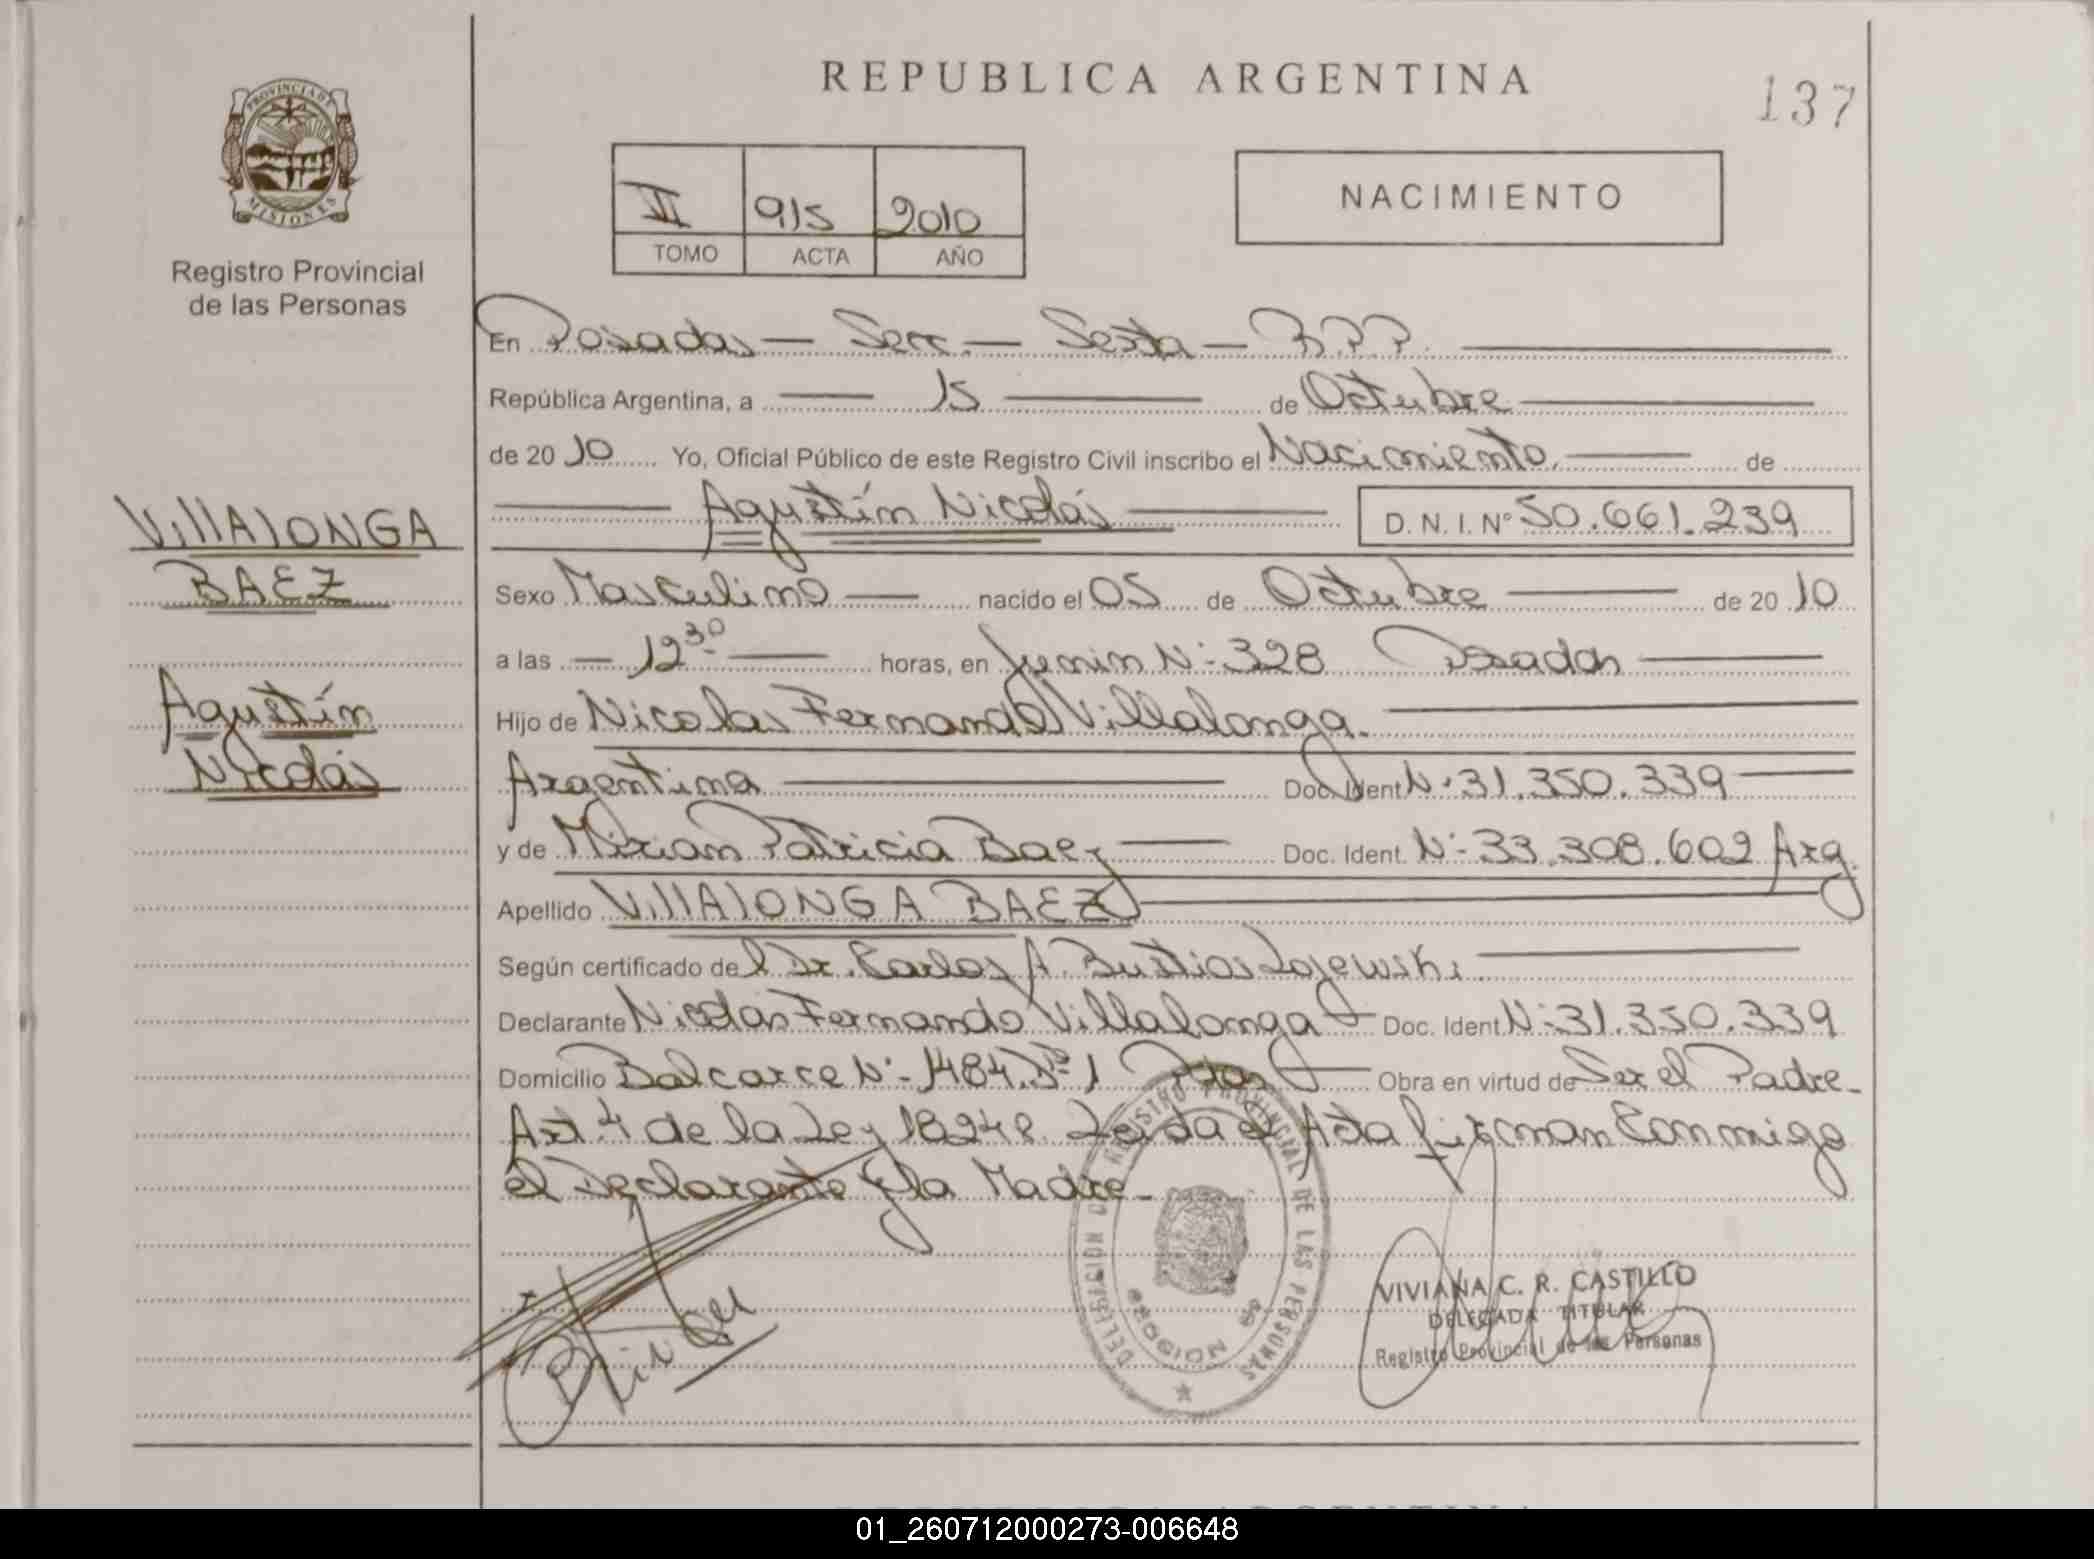 REPUBLICA ARGENTINA
137
PROVINCIA DE
MISIONES
Registro Provincial
de las Personas
II 915 2010
TOMO ACTA AÑO
NACIMIENTO
En Posadas — Secc. — Sexta —
República Argentina, a — 15 — de Octubre
de 2010 Yo, Oficial Público de este Registro Civil inscribo el Nacimiento. — de
Agustín Nicolás D. N. I. Nº 50.661.239
VillAlONGA
BAEZ
Agustín
Nicolás
Sexo Masculino — nacido el 05 de Octubre — de 2010
a las — 12 30 — horas, en Junin Nº 328 Posadas
Hijo de Nicolas Fernando Villalonga.
Argentina — Doc. Ident Nº 31.350.339
y de Mirian Patricia Baez — Doc. Ident. Nº 33.308.602 Arg.
Apellido VillAlONGA BAEZ
Según certificado del Dr. Carlos A. Bustios Lojewski
Declarante Nicolás Fernando Villalonga Doc. Ident. Nº 31.350.339
Domicilio Balcarce Nº 1484 1 Pdas Obra en virtud de Ser el Padre
Art. 4 de la Ley 18248. Leída el Acta firman Conmigo
el Declarante y la Madre
DELEGACION DE REGISTRO PROVINCIAL DE LAS PERSONAS
VIVIANA C. R. CASTILLO
DELEGADA TITULAR
Registro Provincial de las Personas
01_260712000273-006648